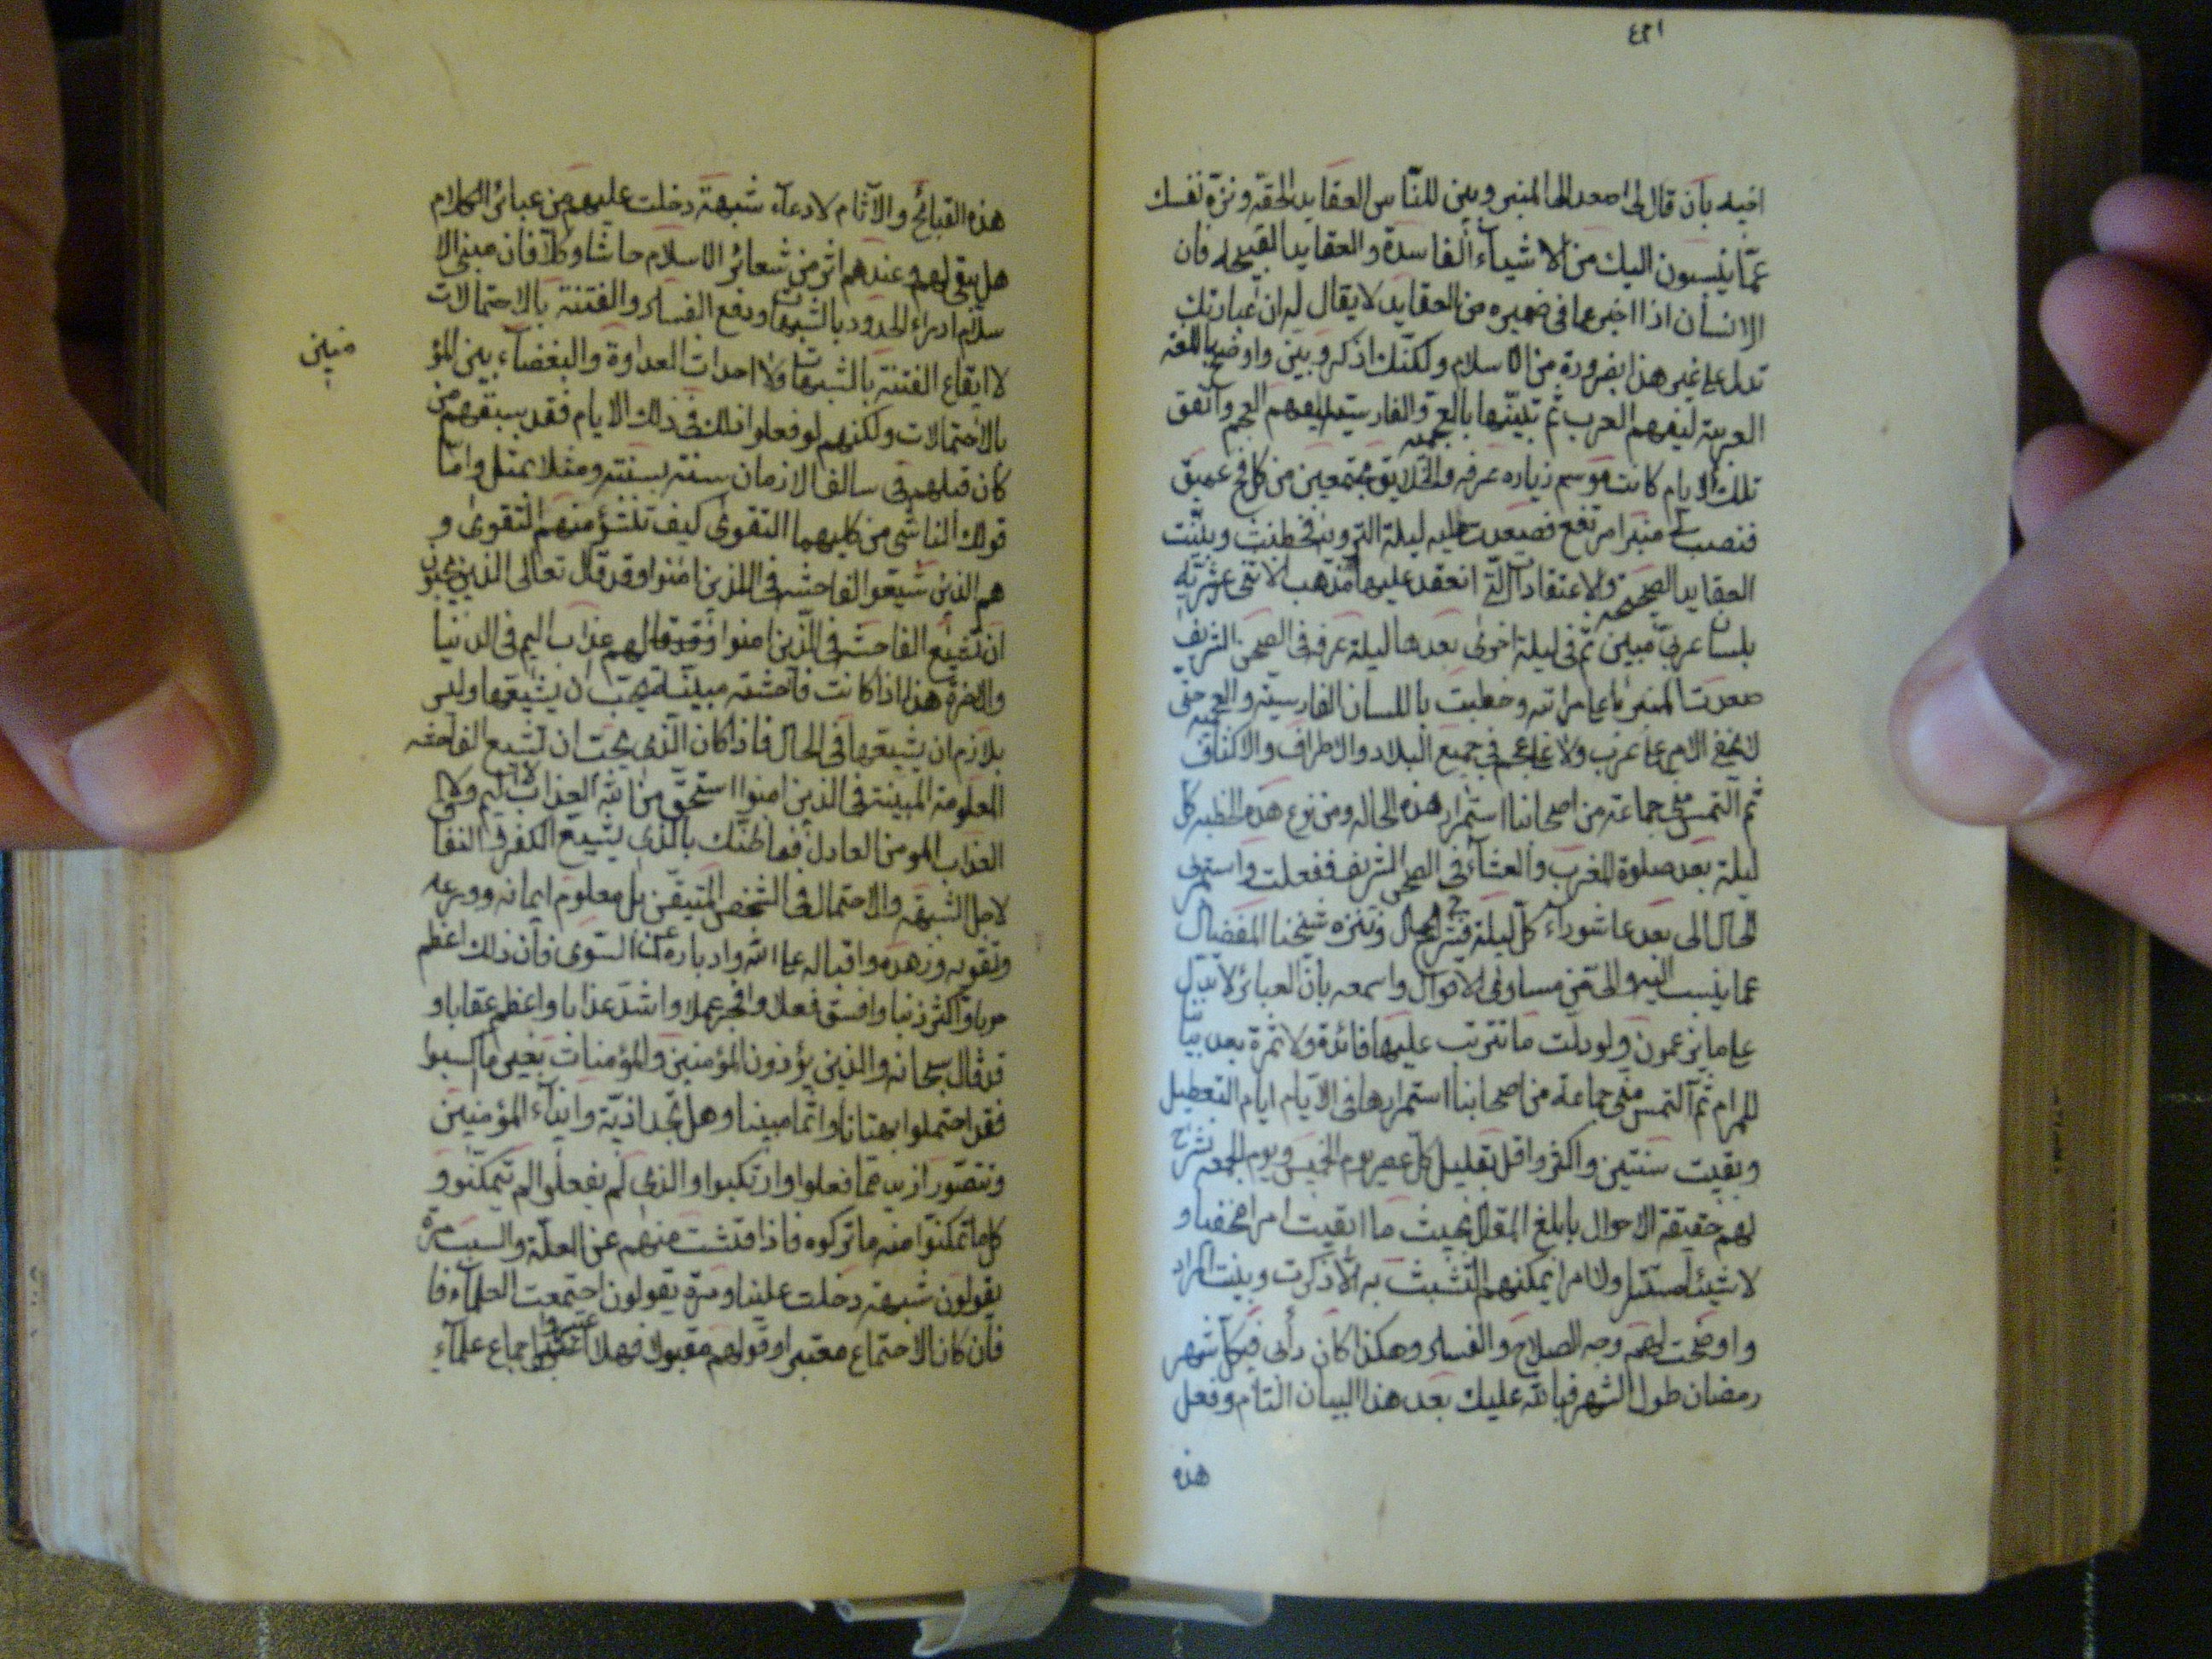 اخيه بان قال لى اصعد الى المنبر وبين للناس العقايد الحقه ونزّه نفسك
عمّا ينسبون اليك من الاشياء الفاسدة والعقايد القبيحه فان
الانسان اذا اخبر عما فى ضميره من العقايد لا يقال له ان عبارتك
تدل على غير هذا بضرورة من الاسلام ولكنّك اذكر وبيّن واوضح باللغة
العربية ليفهم العرب ثم تبيّنها بالعجمية والفارسية ليفهم العجم واتفق
تلك الايام كانت موسم زياره عرفه والخلايق مجتمعين من كل فج عميق
فنصب لى منبرا مرتفع فصعدت عليه ليلة التروية فخطبت وبيّنت
العقايد الصحيحة والاعتقادات التى انعقد عليها مذهب الاثنى عشريّة
بلسان عربىّ مبين ثم فى ليلة اخرى بعدها ليلة عرفه فى الصحن الشريف
صعدت المنبر على مراته وخطبت باللسان الفارسية والعجمية حتى
لا يخفى الامر على عرب ولا على عجم فى جميع البلاد والاطراف والاكناف
ثم التمس منى جماعة من اصحابنا استمرار هذه الحاله ومن نوع هذه الخطبه كل
ليلة بعد صلوة المغرب والعشاء فى الصحن الشريف ففعلت واستمر
الحال الى بعد عاشوراء كل ليلة فشرح الحال وتنزه شيخنا المفضال
عما ينسب اليه والىّ من مساوئ الاقوال واسمعه بانّ العبائر لا تدلّ
على ما يزعمون ولو دلّت ما تترتب عليها فائدة ولا ثمرة بعد بيان
المرام ثم التمس منى جماعة من اصحابنا استمرارها فى الايّام ايام التعطيل
وبقيت سنتين واكثر واقل بقليل كل عصر يوم الخميس ويوم الجمعه نشرح
لهم حقيقة الاحوال بابلغ المقال بحيث ما ابقيت امرا مخفيا و
لا شيئا مستترا ولا امرا يمكنهم التشبث به الّا ذكرت وبينت المراد
واوضحت لهم وجه الصلاح والفساد وهكذا كان دأبى فى كل شهر
رمضان طول الشهر فبالله عليك بعد هذا البيان التام وفعل
هذه
هذه القبائح والآثام لادعاء شبهة دخلت عليهم من عبائر الكلام
هل يبقى لهم وعندهم اثر من شعائر الاسلام حاشا وكلّا فان مبنى الا
سلام ادراء الحدود بالشبهات ودفع الفساد والفتنة بالاحتمالات
لا ايقاع الفتنة بالشبهات ولا احداث العداوة والبغضاء بين المؤ
منين
بالاحتمالات ولكنهم لو فعلوا ذلك فى ذلك الايام فقد سبقهم من
كان قبلهم فى سالف الازمان سنة بسنة ومثلا بمثل واما
قولك الناشى من كليهما التقوى كيف تنشؤ منهم التقوى و
هم الذين شيّعوا الفاحشه فى الذين امنوا وقد قال تعالى الذين يحبون
ان تشيع الفاحشه فى الذين امنوا لهم عذاب اليم فى الدنيا
والاخرة هذا اذا كانت فاحشة مبيّنة يحبّ ان يشيعها وليس
بلازم ان يشيعها فى الحال فاذا كان الذى يحب ان تشيع الفاحشه
المعلومة المبينة فى الذين امنوا استحقّ من الله العذاب الاليم ولاقى
العذاب المومن العادل فما ظنّك بالذى يشيع الكفر والنفاق
لاجل الشبهه والاحتمال فى الشخص المتيقّن بل معلوم ايمانه وورعه
وتقويه وزهده واقباله على الله وادباره عن السّوى فان ذلك اعظم
حوبا واكثر ذنبا وافسق فعلا وافجر عملا واشدّ عذابا واعظم عقابا و
قد قال سبحانه والذين يؤذون المؤمنين والمؤمنات بغير ما اكتسبوا
فقد احتملوا بهتانا واثما مبينا وهل تجد اذيّة وايذاء المؤمنين
وتتصوّر ازيد مما فعلوا وارتكبوا والذى لم يفعلوا لم تيمكّنوا و
كل ما تمكنوا منه ما تركوه فاذا فتشت منهم عن العلّة والسبب مرّة
يقولون شبهة دخلت علينا ومرّة يقولون اجتمعت العلماء فا
فان كان الاجتماع معتبرا وقولهم مقبولا فهلا اعتبروا اجماع علماء